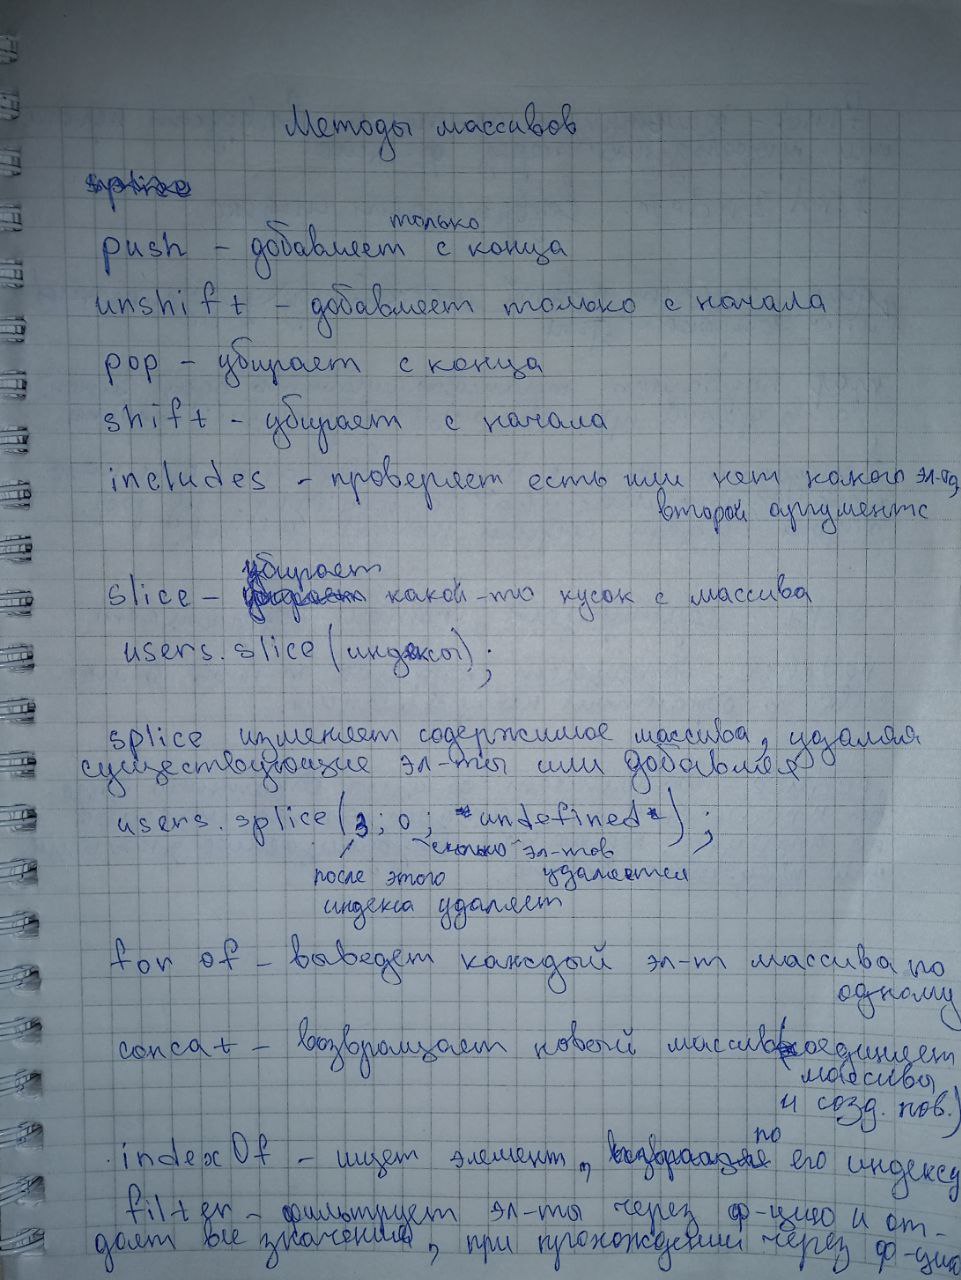 Методы массивов
splice
только
push - добавляет с конца
unshift - добавляет только с начала
pop - убирает с конца
shift - убирает с начала
includes - проверяет есть или нет какого эл-та,
второй аргументс
убирает
slice - какой-то кусок с массива
users.slice(индексы);
splice изменяет содержимое массива, удаляя
существующие эл-ты или добавляя
users.splice(3; 0; *undefined*);
сколько эл-тов
после этого удаляется
индекса удаляет
for of - выведет каждый эл-т массива по
одному
concat - возвращает новый массив(соединяет
массивы
и созд. нов.)
по
indexOf - ищет элемент, его индексу
filter - фильтрует эл-ты через ф-цию и от-
дает все значения, при прохождении через ф-цию